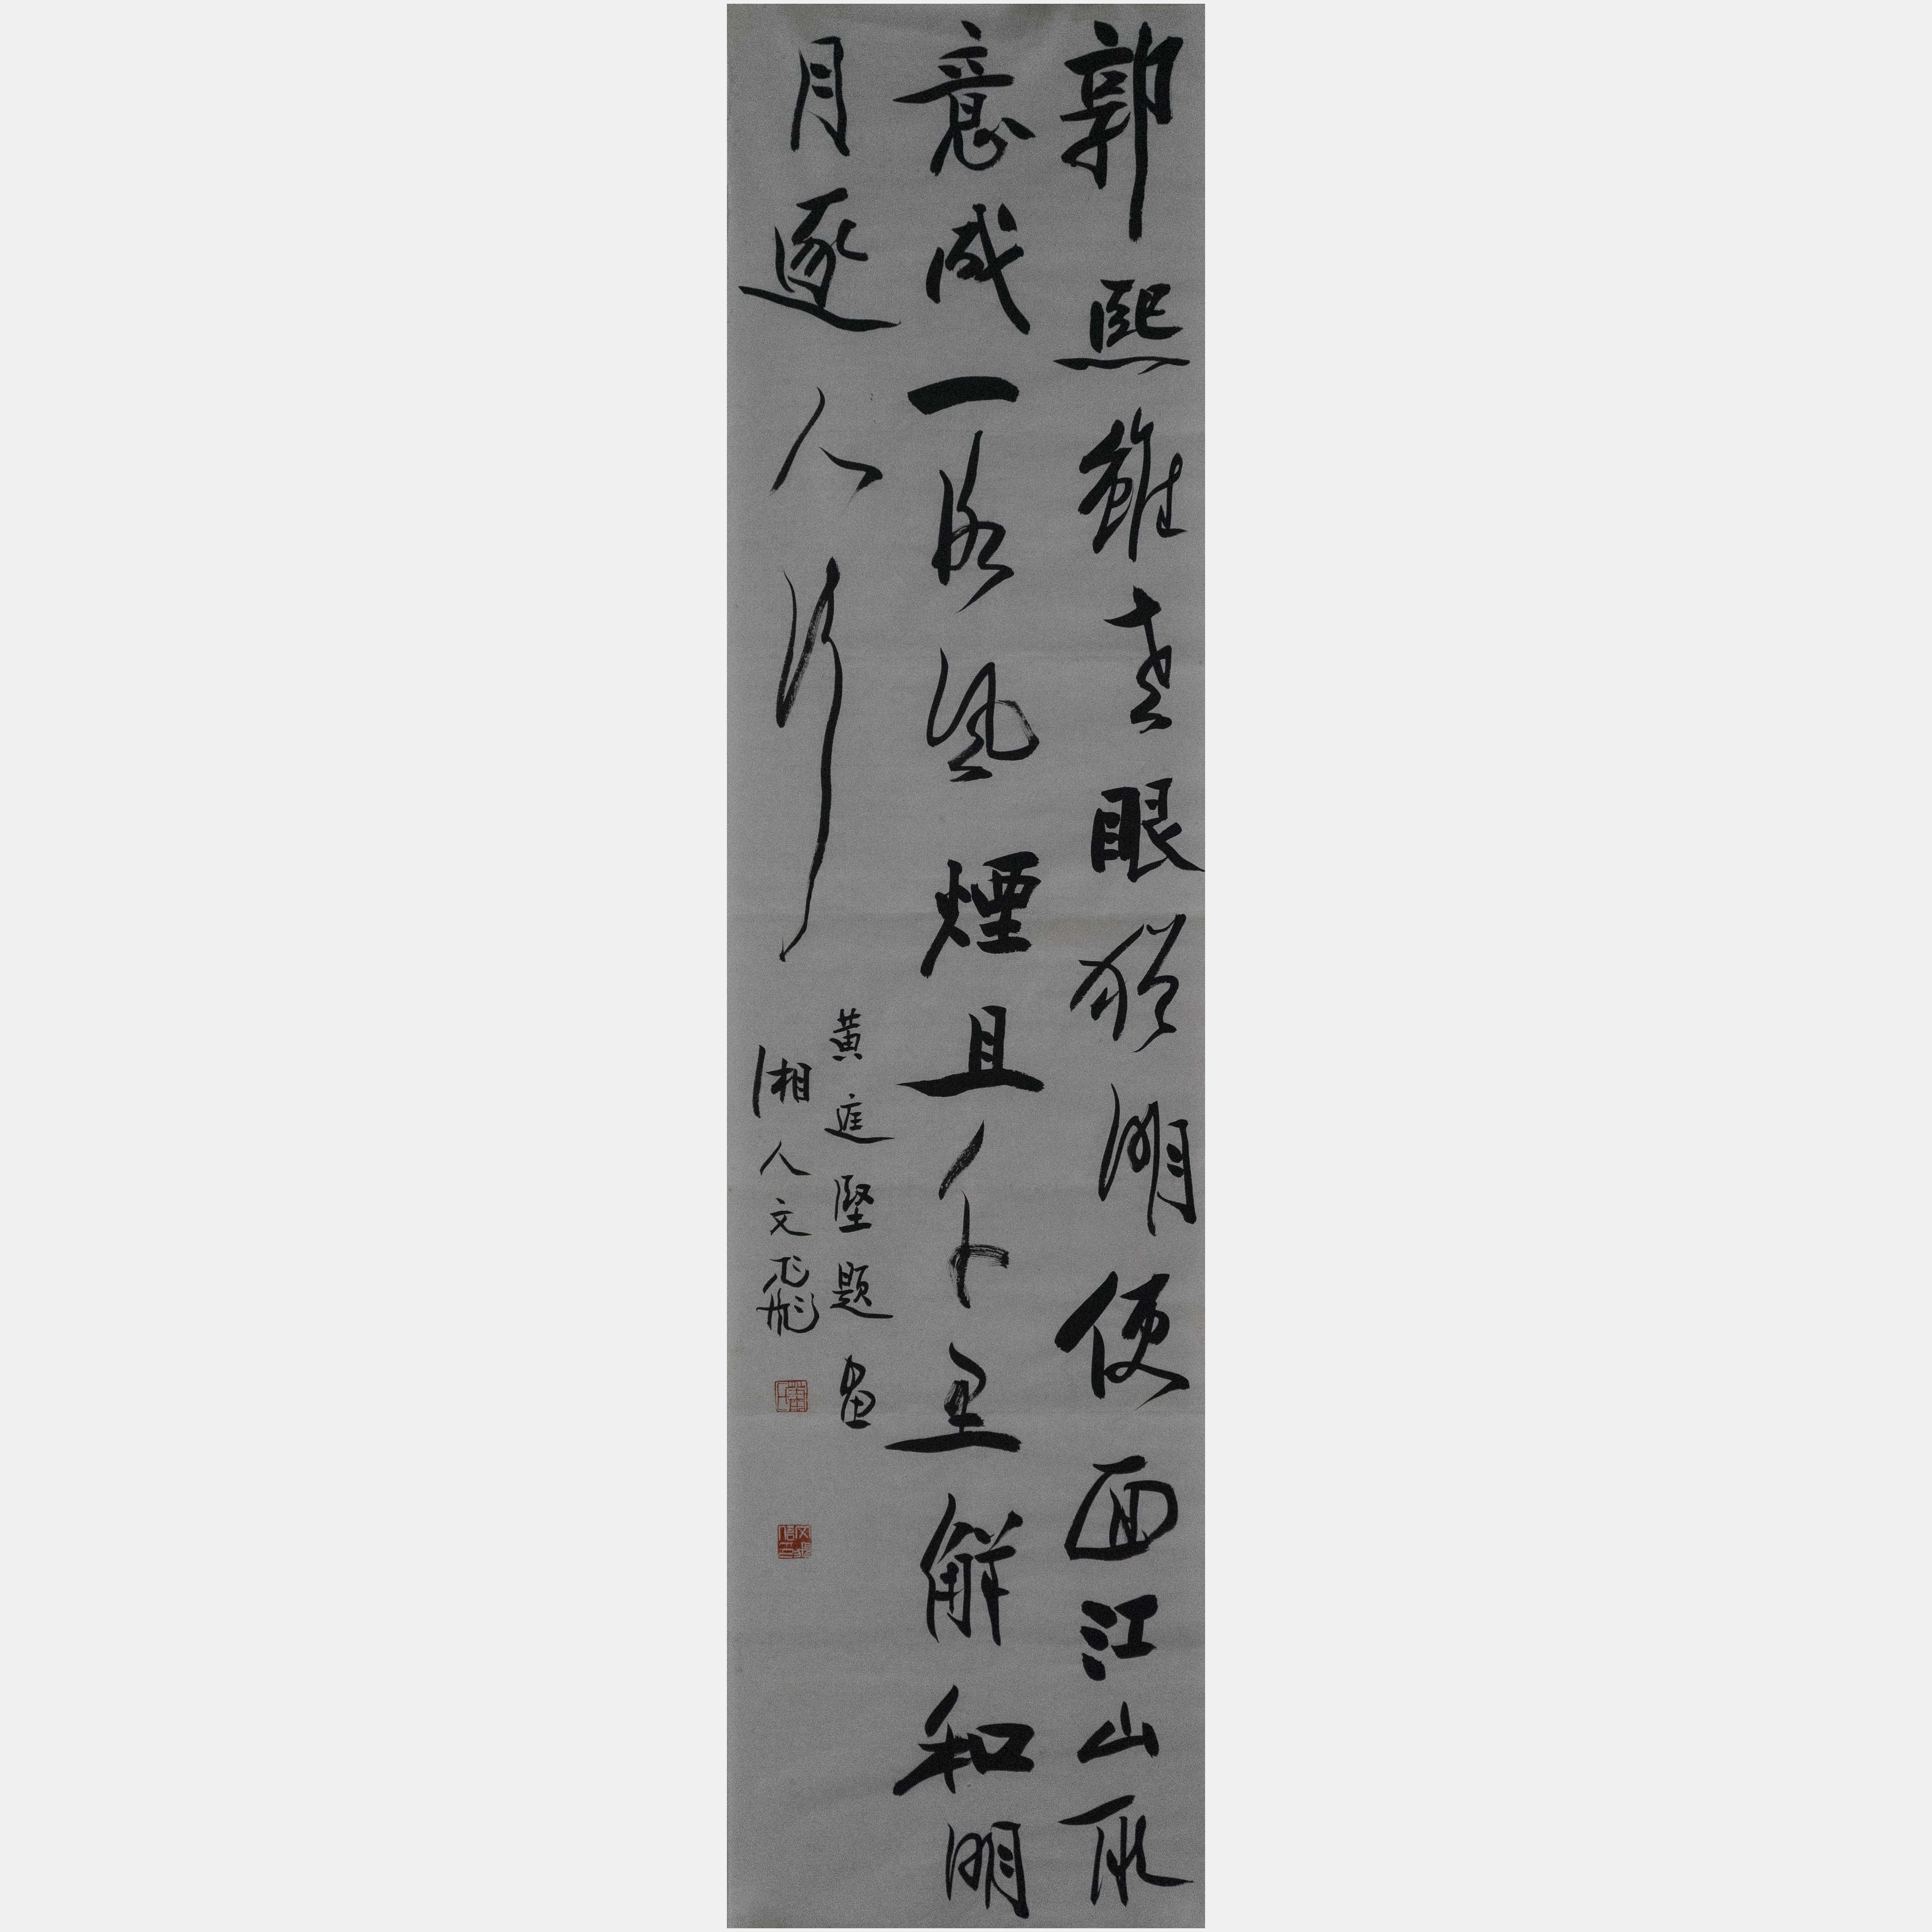 郭熙雖老眼猶明便面江山取
意成一段風煙且千里解如明
月逐人行
黃庭堅題畫
湘人文飛